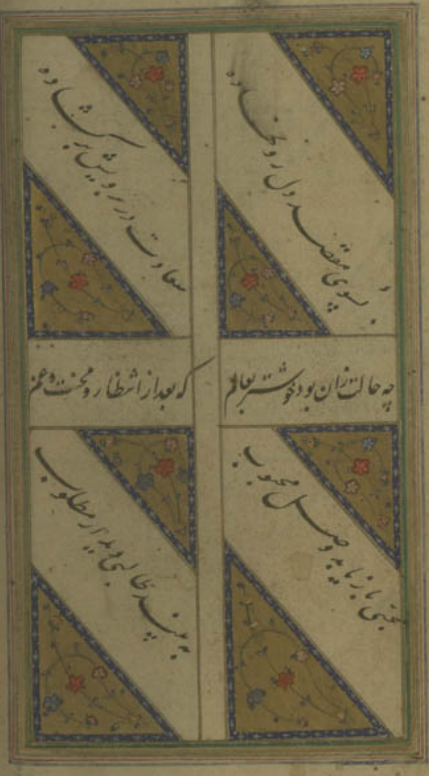 بسوی مقصد دل رو نهاده
سعادت در برویش بر گشاده
چه حالت زان بود خوشتر بعالم
که بعد از انتظار و محنت و غم
محبی باز یابد وصل محبوب
به بیند طالبی دیدار مطلوب